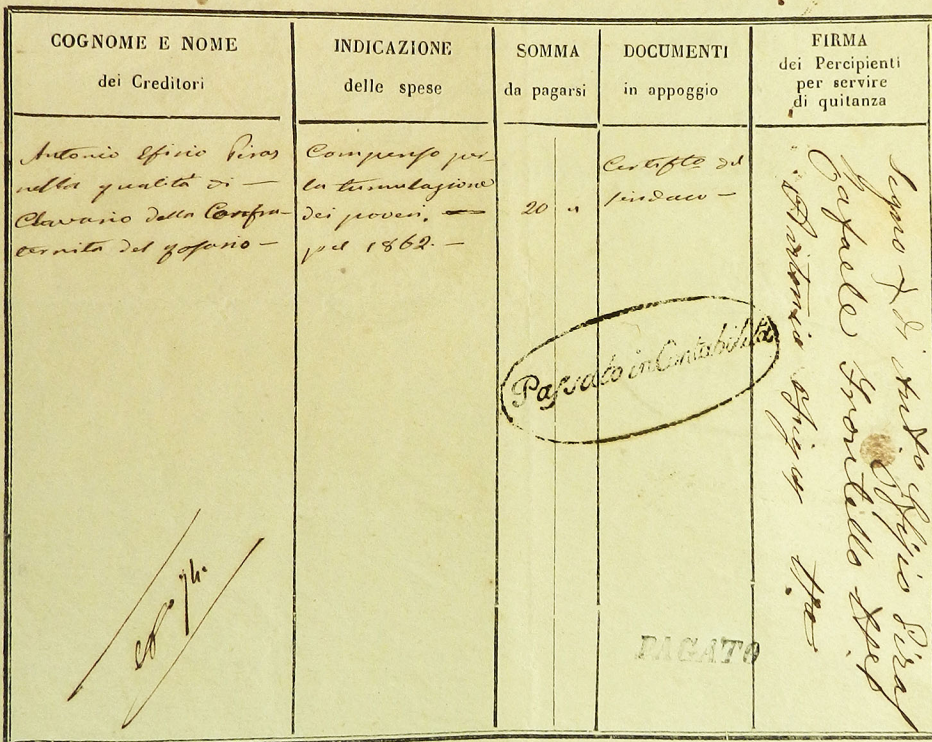 COGNOME E NOME
dei Creditori
INDICAZIONE
delle spese
SOMMA
da pagarsi
DOCUMENTI
in appoggio
FIRMA
dei Percipienti
per servire
di quitanza
Antonio Efisio Piras
nella qualità di —
Clavario della Confra-
ternita del Rosario —
Compenso per
la tumulazione
dei poveri. —
pel 1862. —
20 "
Certifto del
sindaco —
Passato in Contabilità
PAGATO
Segno + di Anto Efisio Piras
Rafaele
Antonio